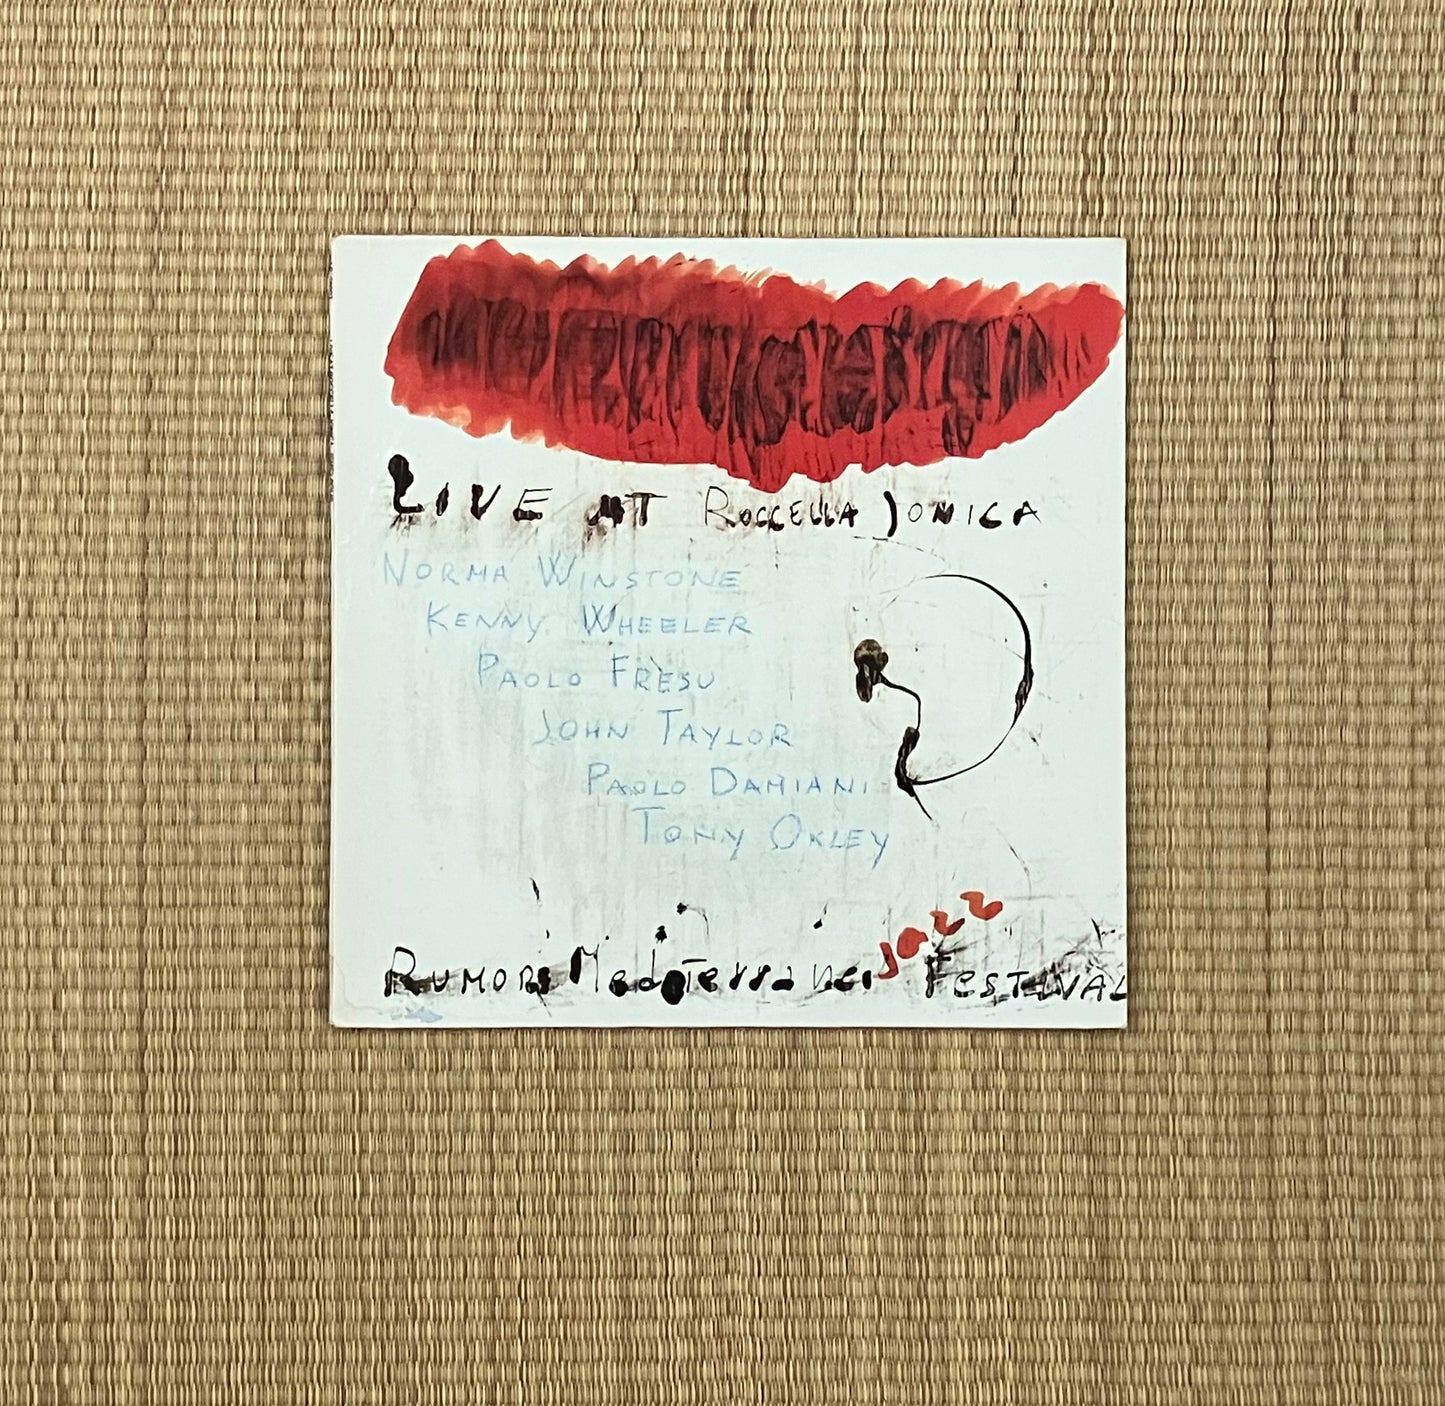 LIVE AT ROCCELLA JONICA
NORMA WINSTONE
KENNY WHEELER
PAOLO FRESU
JOHN TAYLOR
PAOLO DAMIANI
TONY OXLEY
RUMORI MediTerranei jazz FeSTIVAL